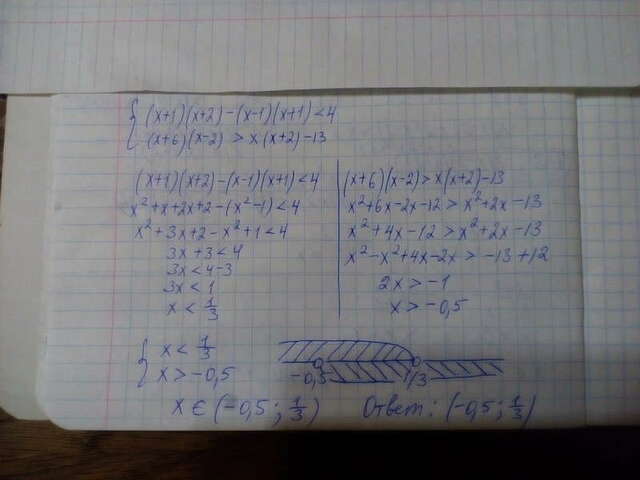 { (x+1)(x+2)-(x-1)(x+1)<4
(x+6)(x-2) > x(x+2)-13
(x+1)(x+2)-(x-1)(x+1)<4
x²+x+2x+2-(x²-1)<4
x²+3x+2-x²+1<4
3x+3<4
3x<4-3
3x<1
x<1/3
(x+6)(x-2)>x(x+2)-13
x²+6x-2x-12>x²+2x-13
x²+4x-12>x²+2x-13
x²-x²+4x-2x > -13+12
2x>-1
x>-0,5
{ x<1/3
x>-0,5
-0,5 1/3
x∈(-0,5; 1/3) Ответ: (-0,5; 1/3)